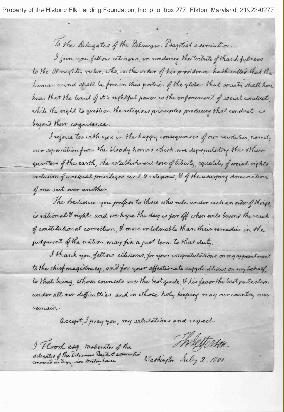 Property of the Historic Elk Landing Foundation, Inc. p.o. box 277, Elkton, Maryland, 21922-0277
To the Delegates of the Delaware Baptist association.
I join you, fellow citizens, in rendering the tribute of thankfulness
to the Almighty ruler, who, in the order of his providence, hath willed that the
human mind shall be free in this portion of the globe: that society shall
know that the limit of it's rightful power is the enforcement of social conduct;
while the right to question the religious principles producing that conduct is
beyond their cognisance.
I rejoice too with you in the happy consequences of our revolution, namely
our separation from the bloody horrors which are depopulating the other
quarters of the earth, the establishment here of liberty, equality of social rights
exclusion of unequal privileges civil & religious, & of the usurping domination
of one sect over another.
The obedience you profess to those who rule under such an order of things
is rational & right: and we hope the day is far off when evils beyond the reach
of constitutional correction, & more intolerable than their remedies in the
judgment of the nation may fix a just term to that duty.
I thank you, fellow citizens, for your congratulations on my appointment
to the chief magistracy, and for your affectionate supplications on my behalf
to that being, whose counsels are the best guide, & his favor the best protection
under all our difficulties, and in whose holy keeping may our country ever
remain.
Accept, I pray you, my salutations and respect.
Th: Jefferson
J. Flood esq. Moderator of the
Washington July 2. 1801.